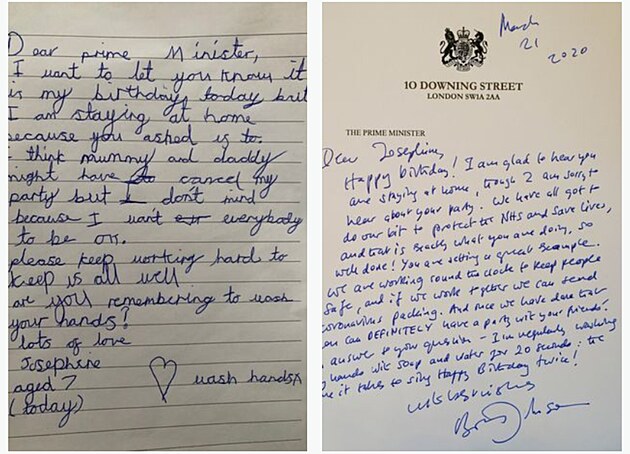 Dear prime Minister,
I want to let you know it
is my birthday today but
I am staying at home
because you asked is to.
I think mummy and daddy
might have to cancel my
party but I don't mind
because I want everybody
to be ok.
please keep working hard to
keep is all well
are you remembering to wash
your hands?
lots of love
Josephine
aged 7
(today)
wash hands
March
21
2020
10 DOWNING STREET
LONDON SW1A 2AA
THE PRIME MINISTER
Dear Josephine,
Happy birthday! I am glad to hear you
are staying at home, though I am sorry to
hear about your party. We have all got to
do our bit to protect the NHS and save lives,
and that is exactly what you are doing, so
well done! You are setting a great example.
We are working round the clock to keep people
safe, and if we work together we can send
coronavirus packing. And once we have done that
you can DEFINITELY have a party with your friends!
answer to your question - I'm regularly washing
hands with soap and water for 20 seconds: the
time it takes to sing Happy Birthday twice!
With best wishes
Boris Johnson